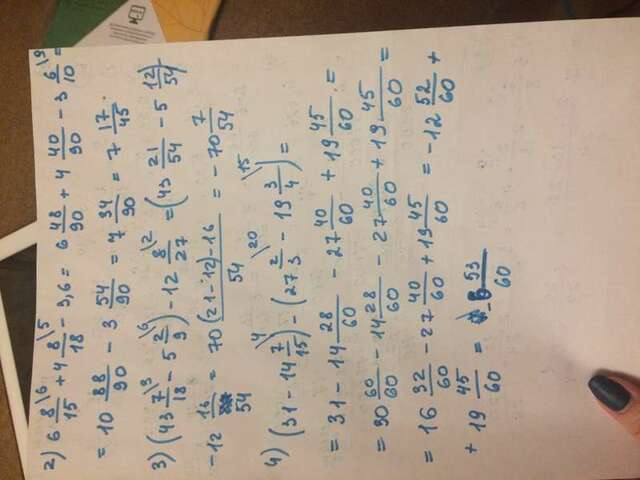 2) 6 8/15 \6 + 4 8/18 \5 - 3,6 = 6 48/90 + 4 40/90 - 3 6/10 \9 =
= 10 88/90 - 3 54/90 = 7 34/90 = 7 17/45.
3) (43 7/18 \3 - 5 2/9 \6) - 12 8/27 \2 = (43 21/54 - 5 12/54) -
- 12 16/54 = 70 (21-12)-16/54 = - 70 7/54
4) (31 - 14 7/15 \4) - (27 2/3 \20 - 19 3/4 \15) =
= 31 - 14 28/60 - 27 40/60 + 19 45/60 =
= 30 60/60 - 14 28/60 - 27 40/60 + 19 45/60 =
= 16 32/60 - 27 40/60 + 19 45/60 = - 12 52/60 +
+ 19 45/60 = - 6 53/60